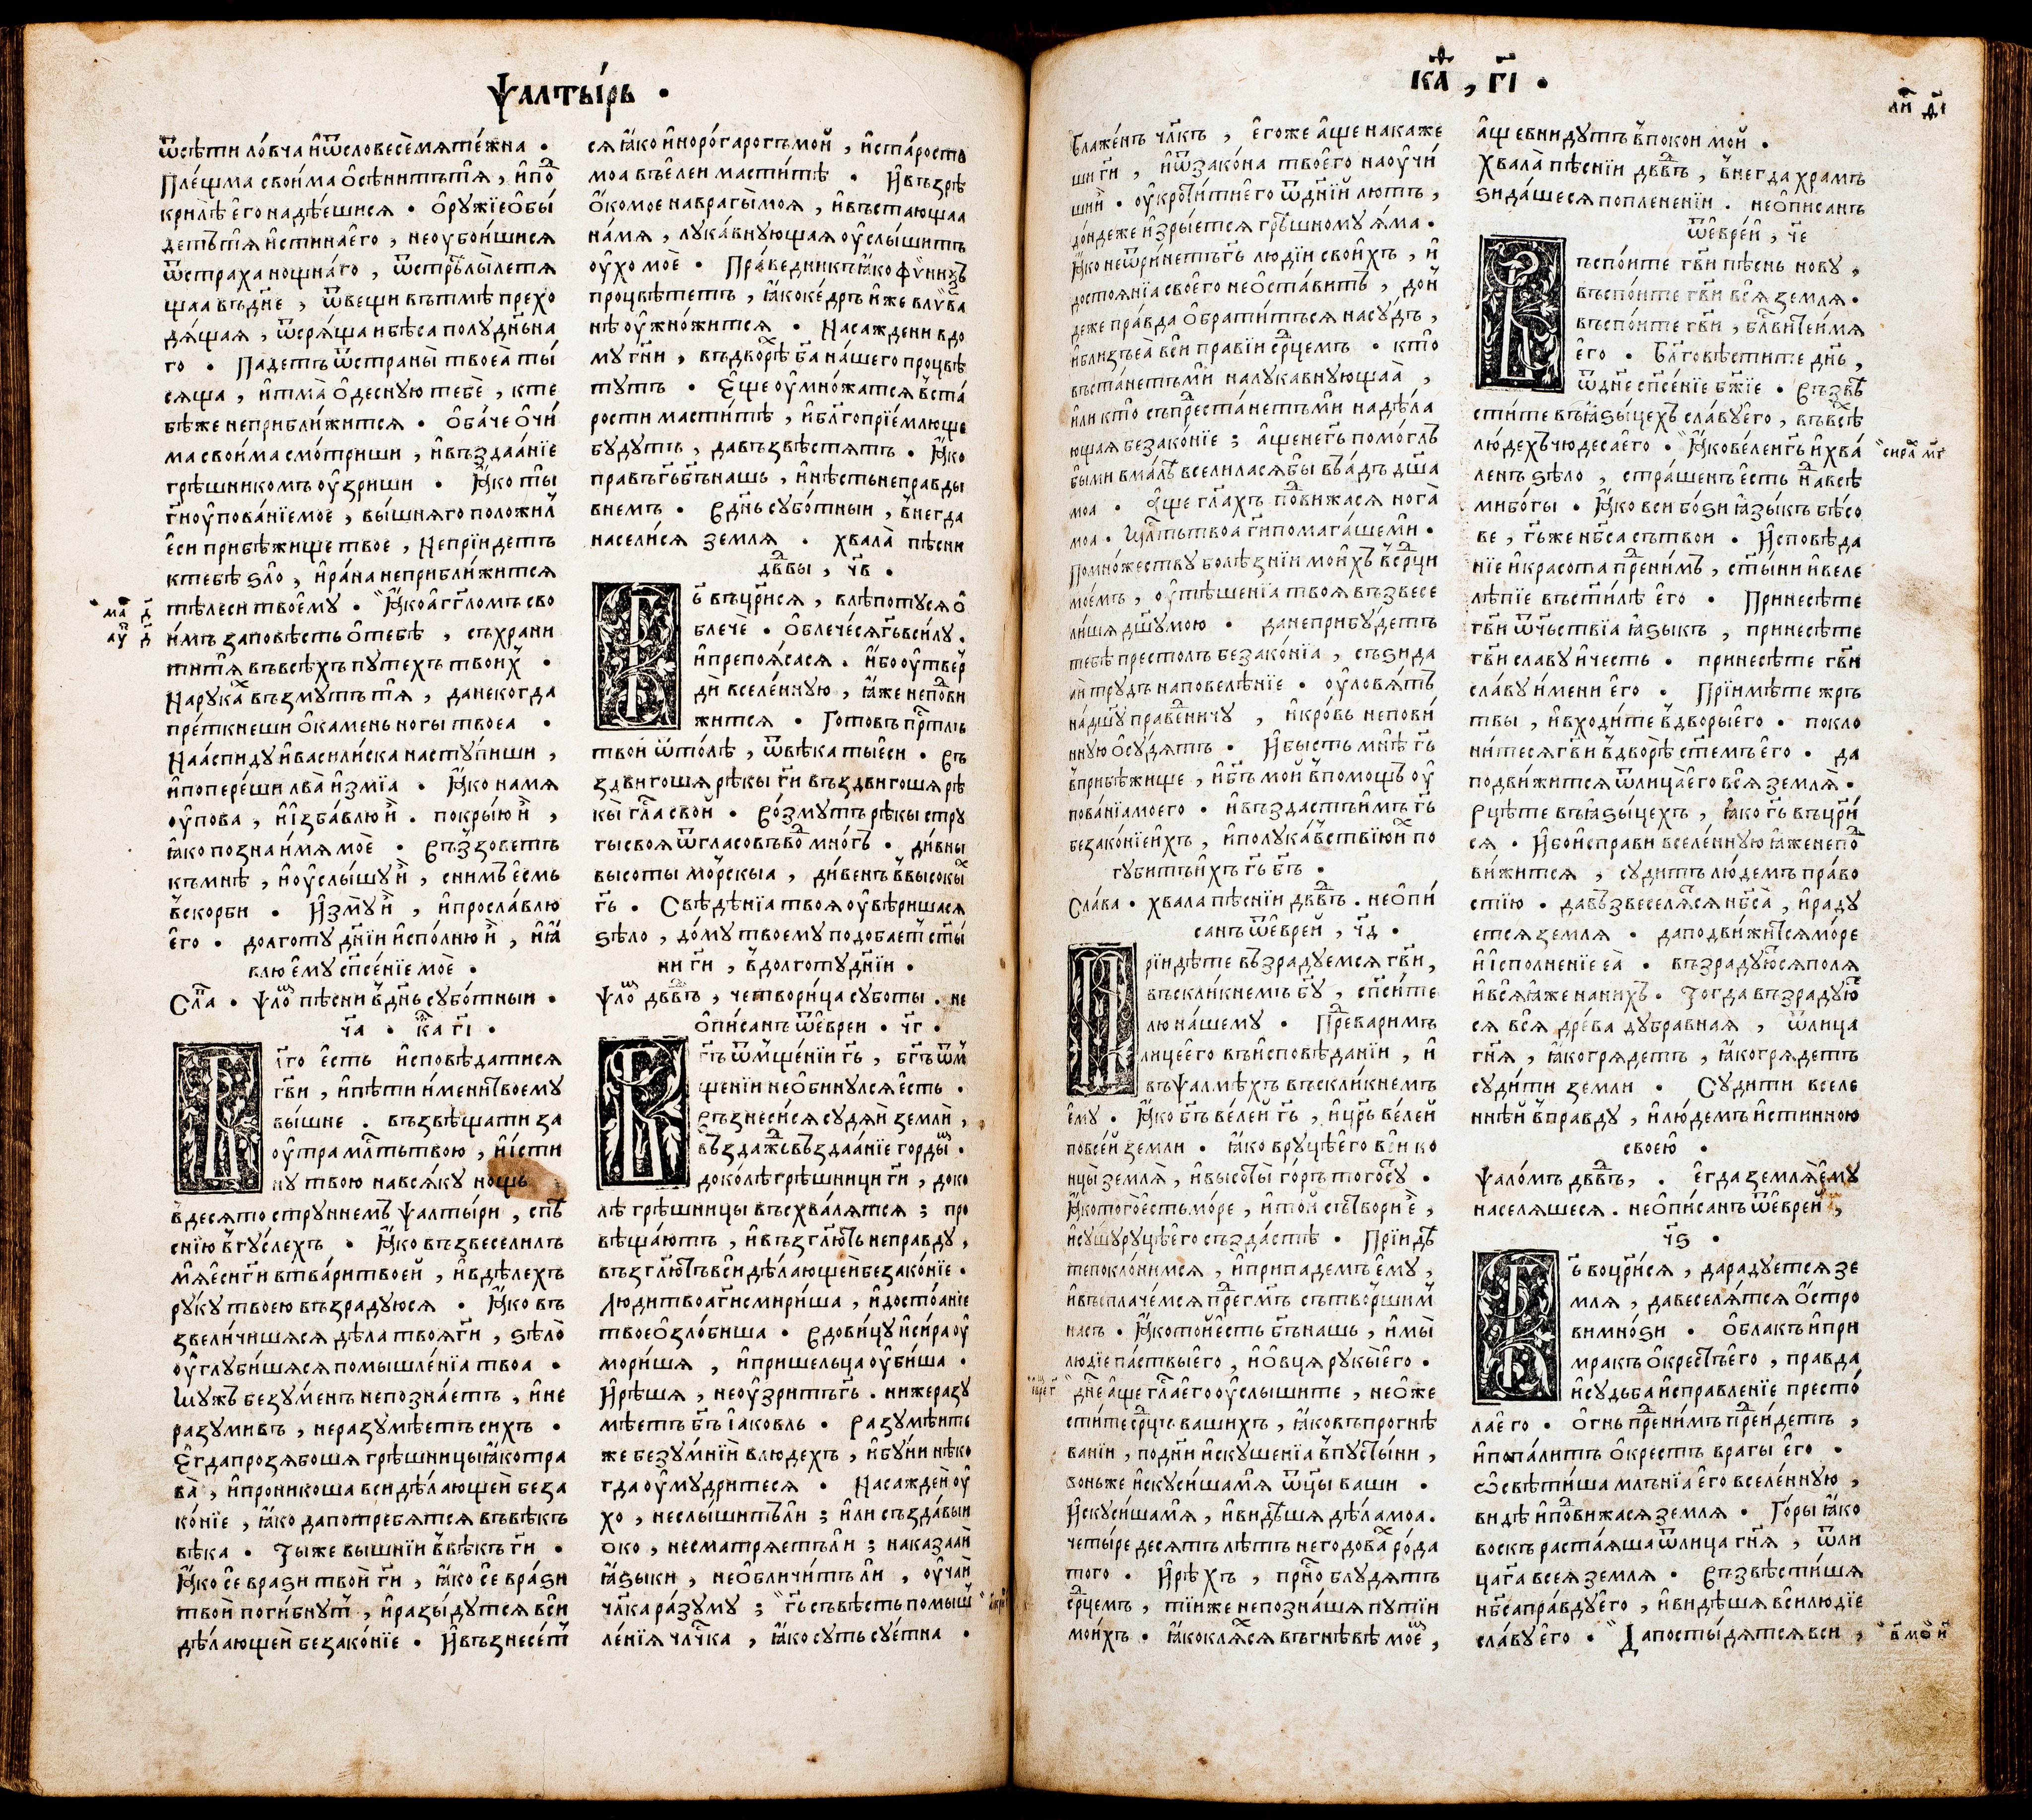 Ѱалты́рь .
ѿсѣти ло́вча и҆ѿсловесѐмѧте́жна .
Пле́щма свои́ма ѻ҆сѣнитътѧ̀ , и҆по
крилѣ̀ е҆го надѣ́ешисѧ . Ѻ҆рꙋжїеѻ҆бы́
детътѧ̀ и҆стинаего̀ , неꙋбои́шисѧ
ѿстраха нощна́го , ѿстрѣлы̀летѧ
щаа въдн҃е , ѿвещи вътмѣ̀ прехо
дѧ́щаѧ , ѿсрѧ́ща ибѣ́са полꙋдн҃ьна
го . Падетъ ѿстраны̀ твоеѧ̀ ты́
сѧща , и҆тма̀ ѻ҆деснꙋю тебѐ , кте
бѣ́же неприбли́житсѧ . Ѻ҆ба́че ѻ҆чи́
ма свои́ма смо́триши , и҆въздаа́нїе
грѣ́шникомъ ѹ҆зриши . Ꙗ҆ко ты̀
гн҃и ѹ҆пова́нїе мое , вы́шнѧго положи́л
е҆си прибѣ́жище твое , Непрїидетъ
ктебѣ̀ ѕло̀ , и҆ра́на неприбли́житсѧ
тѣ́леси твоемꙋ . Ꙗ҆ко а҆гг҃ломъ сво
и́мъ заповѣ́сть ѻ҆тебѣ̀ , съхрани
титѧ̀ въвсѣ́хъ пꙋте́хъ твои́х .
Нарꙋка́х възмꙋтътѧ̀ , данекогда
пре́ткнеши ѻ҆камень ногы̀ твоеа .
Наа́спидꙋ и҆васили́ска настꙋ́пиши ,
и҆попере́ши лва̀ и҆змїа . Ꙗ҆ко на мѧ
ѹ҆пова , и҆и҆зба́влю и҆̀ . покры́ю и҆̀ ,
ꙗ҆ко позна и́мѧ моѐ . Въззоветъ
къмнѣ̀ , и҆ѹ҆слы́шꙋ и҆̀ , снимъ е҆смь
в҆скорби . И҆змꙋ̀ и҆̀ , и҆просла́влю
е҆го̀ . долготꙋ дн҃їи и҆спо́лню и҆̀ , и҆ꙗ҆
влю е҆мꙋ̀ сп҃се́нїе моѐ .
Сла . Ѱло пѣсни в҆дн҃ь сꙋбо́тныи .
ч҃а . ка г҃і .
І҆го е҆сть и҆сповѣ́датисѧ
гв҃и , и҆пѣ́ти и́мени твоемꙋ
вы́шне . възвѣща́ти за
ѹ҆тра мл҃ть твою , и҆и҆сти
нꙋ твою навсѧ́кꙋ нощь
в҆десѧто стрꙋ́ннемъ ѱалты́ри , спѣ
снїю в҆гꙋ́слехъ . Ꙗ҆ко възвесели́лъ
мѧ̀ е҆си гн҃и втва́ри твоей , и҆вдѣ́лехъ
рꙋкꙋ̀ твоею възра́дꙋюсѧ . Ꙗ҆ко въ
звели́чишѧсѧ дѣла твоѧ̀ гн҃и , ѕѣлѡ̀
ѹ҆глꙋби́шѧсѧ помышле́нїа твоа .
Мꙋ́жъ безꙋ́менъ непозна́етъ , и҆не
разꙋ́мивъ , неразꙋмѣ́етъ сихъ .
Е҆гда прозѧбо́шѧ грѣ́шницы ꙗ҆котра
ва̀ , и҆прони́коша вси дѣ́лающеи беза
ко́нїе , ꙗ҆ко да потребѧ́тсѧ въвѣкъ
вѣка . Ты же вы́шнїи в҆вѣкъ гн҃и .
Ꙗ҆ко се врази твоѝ гн҃и , ꙗ҆ко се врази
твоѝ поги́бнꙋт , и҆разы́дꙋтсѧ вси̑
дѣ́лающеи безако́нїе . И҆възнесе́т
ма д
аꙋ д
сѧ ꙗ҆ко и҆норо́га рогъ мой , и҆ста́рость
моа въе҆леи масти́тѣ . И҆възрѣ̀
ѻ҆́ко мое на врагы̀ моѧ , и҆въстающаа
на́мѧ , лꙋка́внꙋющаѧ ѹ҆слы́шитъ
ѹ҆хо моѐ . Пра́ведникъ ꙗ҆ко фѵни́ѯ
процвѣте́тъ , ꙗ҆коке́дръ и҆же влива
нѣ ѹ҆мно́житсѧ . Насаждени вдо
мꙋ гн҃и , въдво́рѣ бг҃а на́шего процвѣ
тꙋтъ . Е҆ще ѹ҆мно́жатсѧ в҆ста́
рости масти́тѣ , и҆благопрїе́млюще
бꙋдꙋтъ , давъзвѣстѧ́тъ . Ꙗ҆ко
правъ гь҃ бг҃ъ нашь , и҆нѣсть непра́вды
в нем . В дн҃ь сꙋбо́тныи , в҆негда
насели́сѧ земля . хвала̀ пѣсни
дв҃ды , ч҃в .
Гь҃ въцр҃исѧ , влѣ́потꙋсѧ ѻ҆
блечѐ . ѻ҆блече́сѧ гь҃ всилꙋ .
и҆препоѧ́сасѧ . и҆бо ѹ҆твер
дѝ вселе́ннꙋю , ꙗ҆же непови
житсѧ . Гото́въ прⷭ҇тлъ
твой ѿто́лѣ , ѿвѣка ты е҆си . Въ
здвигоша рѣ́кы гн҃и въздвигоша рѣ
кы̀ гла своѝ . Возмꙋтъ рѣкы стрꙋ
гы своѧ ѿгласовъ во мно́гъ . ди́вны
высоты̀ мо́рскыа , ди́венъ в҆высокы
гь҃ . Свѣдѣ́нїа твоѧ ѹ҆вѣ́ришасѧ
ѕѣло , до́мꙋ твоемꙋ подоба́ет ст҃ы
ни гн҃и , в҆долготꙋ дн҃їи .
Ѱло дв҃дъ , четвори́ца сꙋбо́ты . не
ѻ҆пи́санъ ѿе҆вреи . ч҃г .
Бг҃ъ ѿмщенїи гь҃ , бг҃ъ ѿм
щенїи неѻ҆бинꙋлсѧ е҆сть .
Възнеси́сѧ сꙋдѧ́й земли̑ ,
въздаждь въздаа́нїе горды .
доко́лѣ грѣ́шници гн҃и , доко
лѣ грѣ́шницы въсхва́лѧтсѧ ; про
вѣща́ютъ , и҆възгл҃ютъ непра́вдꙋ ,
възгл҃ютъ вси дѣ́лающеи безако́нїе .
Люди твоа гн҃и смири́ша , и҆досто́анїе
твоеѻ҆зло́биша . Вдови́цꙋ и҆си́ра ѹ҆
мори́шѧ , и҆прише́льца ѹ҆би́ша .
И҆рѣ́шѧ , неѹ҆зритъ гь҃ . ниже разꙋ
мѣетъ бг҃ъ і҆аковль . Разꙋмѣ́ите
же безꙋ́мнїи влю́дехъ , и҆бꙋ́ии нѣко
гда ѹ҆мꙋ́дритесѧ . Насаждеи ѹ҆
хо , неслы́шитъ ли ; и҆ли създа́выи
ѻко , несматрѧ́етъ ли ; наказа́аи
ꙗ҆зыки , неѻ҆бличи́тъ ли , ѹ҆ча́и
чл҃ка ра́зꙋмꙋ ; гь҃ съвѣсть помыш
ле́нїѧ чл҃чка , ꙗ҆ко сꙋть сꙋетна .
ка , г҃і .
Блаже́нъ чл҃къ , е҆гоже а҆ще нака́же
ши гн҃и , и҆ѿзако́на твоего наѹ҆чи
ши и҆̀ . ѹ҆кроти́ти е҆го ѿдн҃їй лютъ ,
до́ндеже и҆зры́етсѧ грѣшномꙋ ѧ҆ма .
Ꙗ҆ко неѿри́нетъ гь҃ лю́дїи свои́хъ , и҆
достоѧ́нїа своего̀ неѻ҆ста́витъ , дон
деже пра́вда ѻ҆брати́тъсѧ насꙋ́дъ ,
и҆бли́зъ еѧ̀ вси пра́вїи ср҃цемъ . кто̀
въста́нетъ ми налꙋка́внꙋющаѧ ,
и҆ли кто̀ съпреста́нетъ ми надѣ́ла
ющаѧ безако́нїе ; а҆ще не гь҃ помо́глъ
бы ми вмалѣ всели́ласѧ бы въа́дъ дш҃а
моа . А҆ще гл҃ахъ подви́жасѧ нога̀
моа . Мл҃ть твоа гн҃и помага́ше ми .
По мно́жествꙋ болѣ́знїи мои́хъ в҆ср҃ци
мое́мъ , ѹ҆тѣше́нїа твоѧ възвесе
ли́шѧ дш҃ꙋ мою . да неприбꙋ́детъ
тебѣ престо́лъ безако́нїа , съзида
аи трꙋ́дъ наповелѣ́нїе . ѹ҆ловѧ́тъ
надш҃ꙋ пра́ведничꙋ , и҆кро́вь непови́
ннꙋю ѻ҆сꙋ́дѧтъ . И҆бысть мнѣ̀ гь҃
в҆прибѣ́жище , и҆бг҃ъ мой в҆по́мощь ѹ҆
пова́нїа моего . и҆възда́стъ и҆мъ гь҃
безако́нїе и҆хъ , и҆полꙋка́вствїю и҆х по
гꙋби́тъ и҆хъ гь҃ бг҃ъ .
Сла́ва . хвала пѣснїи дв҃дъ . неѻ҆пи
санъ ѿе҆вреи , ч҃д .
Прїидѣ́те възра́дꙋемсѧ гв҃и ,
въскли́кнемъ бг҃ꙋ , сп҃си́те
лю на́шемꙋ . Предвари́мъ
лице е҆го въи҆сповѣ́данїи , и҆
въѱалмѣ́хъ въскли́кнемъ
е҆мꙋ . Ꙗ҆ко бг҃ъ ве́лей гь҃ , и҆цр҃ь ве́лей
повсе́й земли . ꙗ҆ко врꙋцѣ̀ е҆го вси ко
нцы̀ земля̀ , и҆высоты̀ го́ръ того сꙋ .
Ꙗ҆ко того е҆сть мо́ре , и҆то́й сътвори е҆ ,
и҆сꙋшꙋ рꙋцѣ̀ е҆го създа́стѣ . Прїидѣ
те поклони́мсѧ , и҆припаде́мъ е҆мꙋ ,
и҆въсплаче́мсѧ пред гм҃ъ сътвори́шим
насъ . Ꙗ҆ко то́й е҆сть бг҃ъ нашь , и҆мы̀
лю́дїе па́ствы е҆го , и҆ѻ҆вцѧ рꙋкы̀ е҆го .
дн҃е а҆ще гла́с е҆го ѹ҆слы́шите , неѻ҆же
сти́те ср҃ць ва́шихъ , ꙗ҆ко въпрогнѣ́
ванїи , подн҃и и҆скꙋше́нїа в҆пꙋсты́ни ,
воньже и҆скꙋси́ша мѧ̀ ѿц҃ы ва́ши .
И҆скꙋси́ша мѧ̀ , и҆видѣшѧ дѣла моа .
четы́редесѧтъ лѣ́тъ негодова́х ро́да
того . И҆рѣхъ , прⷭ҇но блꙋдѧ́тъ
ср҃цемъ , тїи же непозна́шѧ пꙋтїи
мои́хъ . ꙗ҆ко клѧ́хсѧ въгнѣ́вѣ мое ,
а҆ще внидꙋтъ в҆покои мой .
Хвала̀ пѣснїи дв҃дъ , в҆негда храмъ
зида́шесѧ поплене́нїи . неѻ҆писанъ
ѿе҆вре́й , ч҃е
Въспо́ите гв҃и пѣ́снь новꙋ ,
въспо́ите гв҃и всѧ̀ земля .
въспо́ите гв҃и , бл҃ви́те и́мѧ
е҆го . Благовѣсти́те дн҃ь ,
ѿдн҃е сп҃се́нїе бж҃їе . Възвѣ
сти́те въꙗ҆зы́цехъ сла́вꙋ е҆го , въвсѣх
лю́дехъ чюдеса е҆го . Ꙗ҆ко ве́лей гь҃ и҆хва́
ленъ ѕѣло , стра́шенъ е҆сть надвсѣ
ми бо́гы . Ꙗ҆ко вси бо́зи ꙗ҆зы́къ бѣ́со
ве , гь҃ же нб҃са сътвори . И҆сповѣ́да
нїе и҆красота пред ни́мъ , ст҃ыни и҆веле
лѣ́пїе въст҃и́лѣ е҆го . Принесѣ́те
гв҃и ѿч҃ьствїа ꙗ҆зыкъ , принесѣ́те
гв҃и сла́вꙋ и҆че́сть . принесѣ́те гв҃и
сла́вꙋ и́мени е҆го . Прїимѣ́те жръ
твы , и҆входи́те в҆дворы̀ е҆го . покло
ни́тесѧ гв҃и в҆дворѣ̀ ст҃емъ е҆го . да
подви́житсѧ ѿлица̀ е҆го всѧ̀ земля̀ .
Рцѣ́те въꙗ҆зы́цехъ , ꙗ҆ко гь҃ въцр҃и
сѧ . И҆бо и҆спра́ви вселе́ннꙋю ꙗ҆же непо
ви́житсѧ , сꙋ́дитъ лю́демъ пра́во
стїю . давъзвеселѧ́тсѧ нб҃са̀ , и҆ра́дꙋ
етсѧ земля . даподви́житсѧ мо́ре
и҆и҆сполне́нїе еѧ̀ . възра́дꙋютсѧ поля
и҆всѧ̀ ꙗ҆же на них . Тогда възра́дꙋют
сѧ всѧ̀ дре́ва дꙋбра́внаѧ , ѿлица
гн҃ѧ , ꙗ҆ко грѧде́тъ , ꙗ҆ко грѧде́тъ
сꙋди́ти земли . Сꙋди́ти вселе
ннѣ́й в҆пра́вдꙋ , и҆лю́демъ и҆стинною
своею .
Ѱало́мъ дв҃дъ , . е҆гда земля̀ е҆мꙋ
населѧ́шесѧ . неѻ҆пи́санъ ѿе҆вре́й ,
ч҃ѕ .
Гь҃ воцр҃исѧ , дара́дꙋетсѧ зе
мля , давеселѧ́тсѧ ѻ҆стро
ви мно́зи . ѻ҆блакъ и҆при
мракъ ѻ҆крестъ е҆го , пра́вда
и҆сꙋдьба и҆справле́нїе престо́
ла е҆го . Ѻгнь пред ни́мъ пред и́детъ ,
и҆попа́литъ ѻ҆крестъ врагы̀ е҆го .
ѡ҆свѣти́ша мл҃ънїа е҆го вселе́ннꙋю ,
видѣ и҆подви́жасѧ земля . Го́ры ꙗ҆ко
воскъ раста́ѧша ѿлица гн҃ѧ , ѿли
ца гн҃ѧ всеѧ земля . Възвѣсти́шѧ
нб҃са пра́вдꙋ е҆го , и҆ви́дѣшѧ вси лю́дїе
сла́вꙋ е҆го . Да постыдѧ́тсѧ вси ,